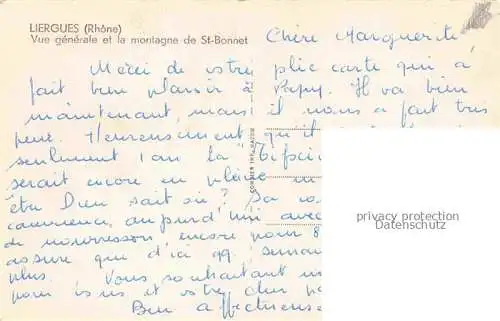 LIERGUES (Rhône)
Vue générale et la montagne de St-Bonnet
Chère Marguerite
Merci de votre plie carte qui a
fait bien plaisir à Papy. Il va bien
maintenant, mais il nous a fait très
peur. Heureusement qu'il
seulement 1 an la
serait encore en pleine
être Dieu sait où? Sa
aujourd'hui avec
de nourrisson, encore pour 8
assure que d'ici qq. semai
plus. Vous souhaitant
pour et votre cher
Bien affectueuse
COMBIER IMP. MACON
privacy protection
Datenschutz